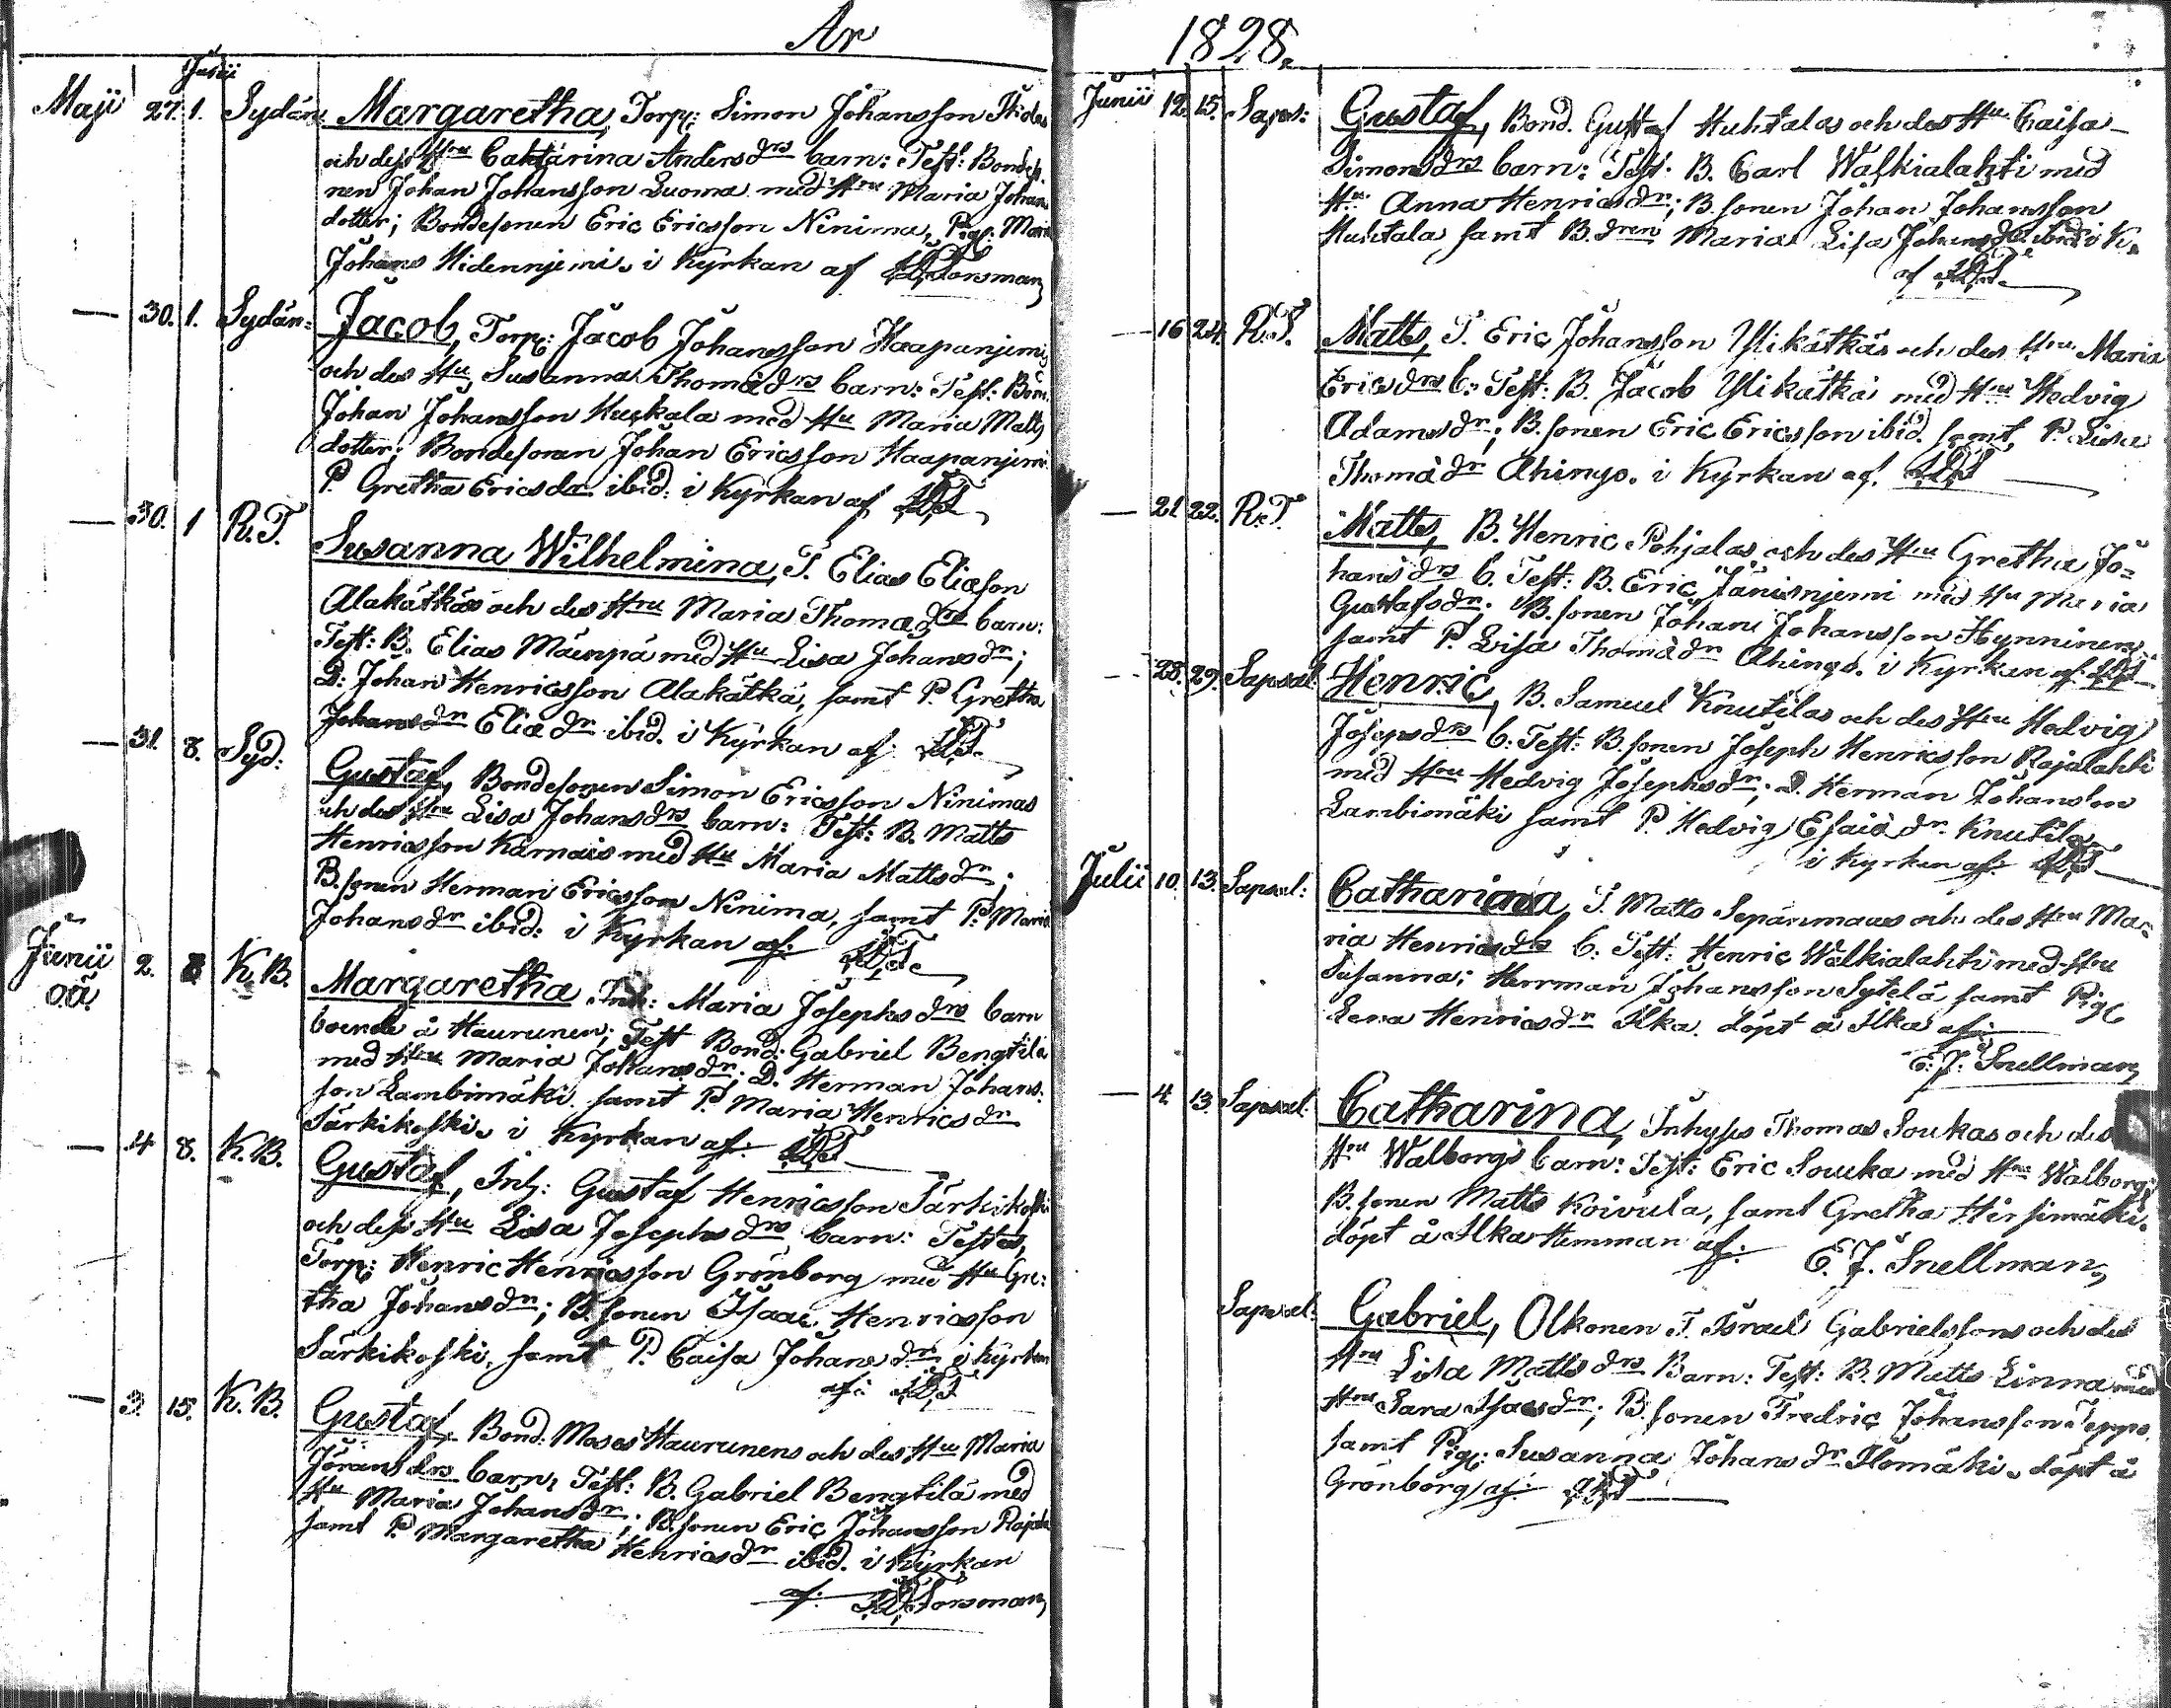 År
Junii
Maji 27. 1. Sydän: Margaretha, Torp: Simon Johansson
och dess Hru Catharina Anders drs barn: Test: Bondes.
nen Johan Johansson Luoma med Hru Maria Johans
dotter; Bondesonen Eric Ericsson Ninima, Pig: Maria
Johans Hidennjemi. i Kyrkan af Forsman
— 30. 1. Sydän: Jacob, Torp: Jacob Johansson Haapanjemi
och des Hu Susanna Thomä drs barn: Test: Bon.
Johan Johansson Kuckala med Hu Maria Matts
dotter; Bondesonen Johan Ericsson Haapanjemi
P. Gretha Erics dr. ibid: i Kyrkan af
— 30. 1 R.T. Susanna Wilhelmina, T. Elias Eliason
Alakätkäs och des Hru Maria Thomæ drs barn:
Test: B. Elias Mäenpä med Hu Lisa Johans dr;
D: Johan Henricsson Alakätkä, samt P. Gretha
Johans dr Eliæ dr ibid. i Kyrkan af
— 31. 8. Syd: Gustaf, Bondesonen Simon Ericsson Ninimas
och des Hru Lisa Johans drs barn: Test: B. Matts
Henricsson Karnais med Hu Maria Matts dr;
B. sonen Herman Ericsson Ninima, samt P. Maria
Johans dr ibid: i Kyrkan af:
Junii 2. 8 K.B. Margaretha Inh: Maria Josephs drs barn
oä. boende å Haurunen; Test Bond: Gabriel Bengtilä
med Hru Maria Johans dr. D. Herman Johans:
son Lambimäki samt P. Maria Henrics dr
Särkikoski. i Kyrkan af:
— 4 8. K.B. Gustaf, Inh: Gustaf Henricsson Särkikoski
och dess Hu Lisa Josephs drs barn: Testes,
Torp: Henric Henricsson Grönborg med Hu Gre:
tha Johans dr; B. sonen Isaac Henricsson
Särkikoski, samt P. Caisa Johans dr i Kyrkan
af:
— 3. 15. K.B. Gustaf, Bond: Moses Haurunens och des Hu Maria
Jörans drs barn, Test: B. Gabriel Bengtilä med
Hu Maria Johans dr; B. sonen Eric Johansson Rajala
samt P. Margaretha Henrics dr ibid. i Kyrkan
af: Forsman
1828.
Junii 12. 15. Sapsal: Gustaf, Bond. Gustaf Huhtalas och des Hu Caisa
Simons drs barn: Test: B. Carl Walkialahti med
Hu Anna Henrics dr; B. sonen Johan Johansson
Huhtala samt B. dren Maria Lisa Johans dr ibid i K.
af
— 16 24. R.T. Matts, T. Eric Johansson Ylikätkäs och des Hru Maria
Erics drs b: Test: B. Jacob Ylikätkä med Hru Hedvig
Adams dr; B. sonen Eric Ericsson ibid. samt P. Lisa
Thomä dr Ahingo. i Kyrkan af.
— 21 22. R.T. Matts, B. Henric Pohjalas och des Hru Gretha Jo=
hans drs b. Test: B. Eric Jänisnjemi med Hu Maria
Gustafs dr. B. sonen Johan Johansson Hynninen
samt P. Lisa Thomä dr Ahingo. i Kyrkan af
— 28. 29. Sapsal: Henric, B. Samuel Knutilas och des Hru Hedvig
Joseps drs b: Test: B. sonen Joseph Henricsson Rajalahti
med Hru Hedvig Josephs dr; D. Herman Johansson
Lambimäki samt P. Hedvig Esaiä dr Knutila
i Kyrkan af:
Julii 10. 13. Sapsal: Catharina, T. Matts Sepänmaas och des Hru Ma=
ria Henrics drs b. Test: Henric Walkialahti med Hru
Susanna; Herrman Johansson Sytelä samt Pig
Lena Henrics dr Ilka. döpt å Ilka af:
E: J: Snellman,
— 4. 13. Sapsal: Catharina, Inhyses Thomas Soukas och des
Hru Walborgs barn: Test: Eric Souka med Hru Walborg;
B. sonen Matts Koivula, samt Gretha Hirsimäki.
döpt å Ilka Hemman af: E. J. Snellman,
Sapsal: Gabriel, Olkonen T. Israel Gabrielssons och des
Hru Lisa Matts drs Barn: Test: B. Matts Linna med
Hru Sara Isacs dr; B. sonen Fredric Johansson Seppo.
samt Pig: Susanna Johans dr Ilomäki. döpt å
Grönborg af: